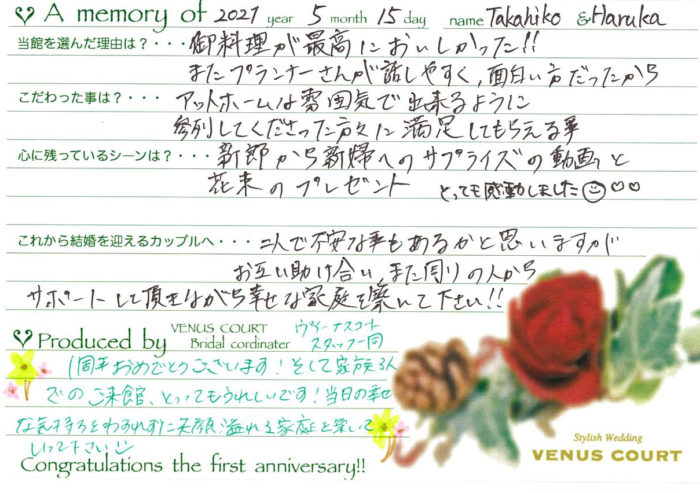 A memory of 2021 year 5 month 15 day name Takahiko & Haruka
当館を選んだ理由は？・・・御料理が最高においしかった!!
またプランナーさんが話しやすく、面白い方だったから
こだわった事は？・・・アットホームな雰囲気で出来るように
参列してくださった方々に満足してもらえる事
心に残っているシーンは？・・・新郎から新婦へのサプライズの動画と
花束のプレゼント とっても感動しました☺♡♡
これから結婚を迎えるカップルへ・・・二人で不安な事もあるかと思いますが
お互い助け合い、また周りの人から
サポートして頂きながら幸せな家庭を築いて下さい!!
Produced by VENUS COURT Bridal cordinater ヴィーナスコート スタッフ一同
1周年おめでとうございます！そして家族3人
でのご来館、とってもうれしいです！当日の幸せ
な気持ちをわすれずに笑顔溢れる家庭を築いて
いって下さい☺
Stylish Wedding
VENUS COURT
Congratulations the first anniversary!!